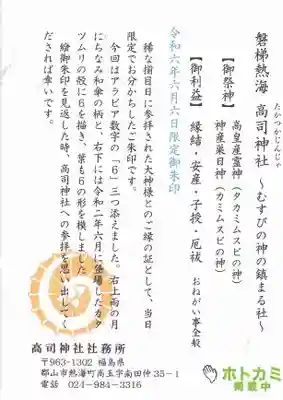 磐梯熱海 高司神社 ～むすびの神の鎮まる社～
たかつかじんじゃ
【御祭神】 高皇産霊神(タカミムスビの神)
神産巣日神(カミムスビの神)
【御利益】 縁結・安産・子授・厄祓 おねがい事全般
令和六年六月六日限定御朱印
稀な揃目に参拝された大神様とのご縁の証として、当日
限定でお分かちしたご朱印です。
今回はアラビア数字の「6」三つ添えました。右上雨の月
にちなみ和傘の柄と、右下には令和二年六月に登場したカタ
ツムリの殻に6を描き、葉も6の形を模しました。
絵御朱印を見返した時、高司神社への参拝を思い出してく
だされば幸いです。
高司神社社務所
〒963-1302 福島県
郡山市熱海町高玉字南田仲35-1
電話 024-984-3316
ホトカミ
掲載中